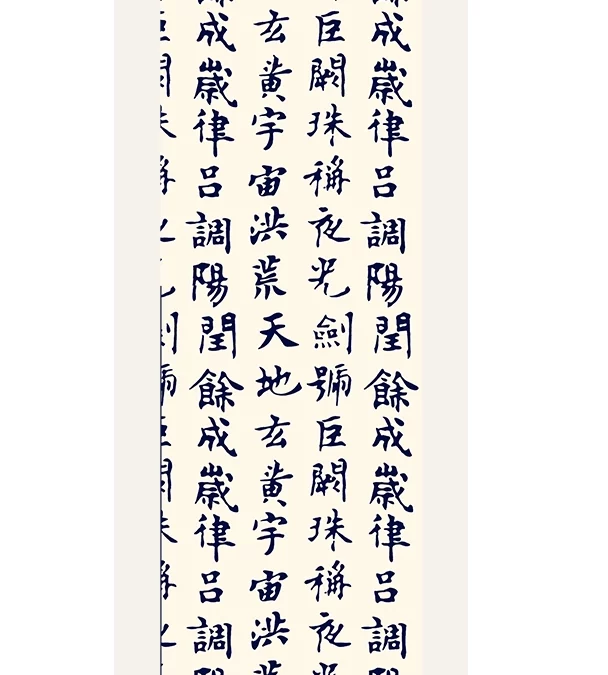 成歲律呂調陽閏餘成歲律呂調
巨闕珠稱夜光劍號巨闕珠稱夜
玄黃宇宙洪荒天地玄黃宇宙洪
成歲律呂調陽閏餘成歲律呂調